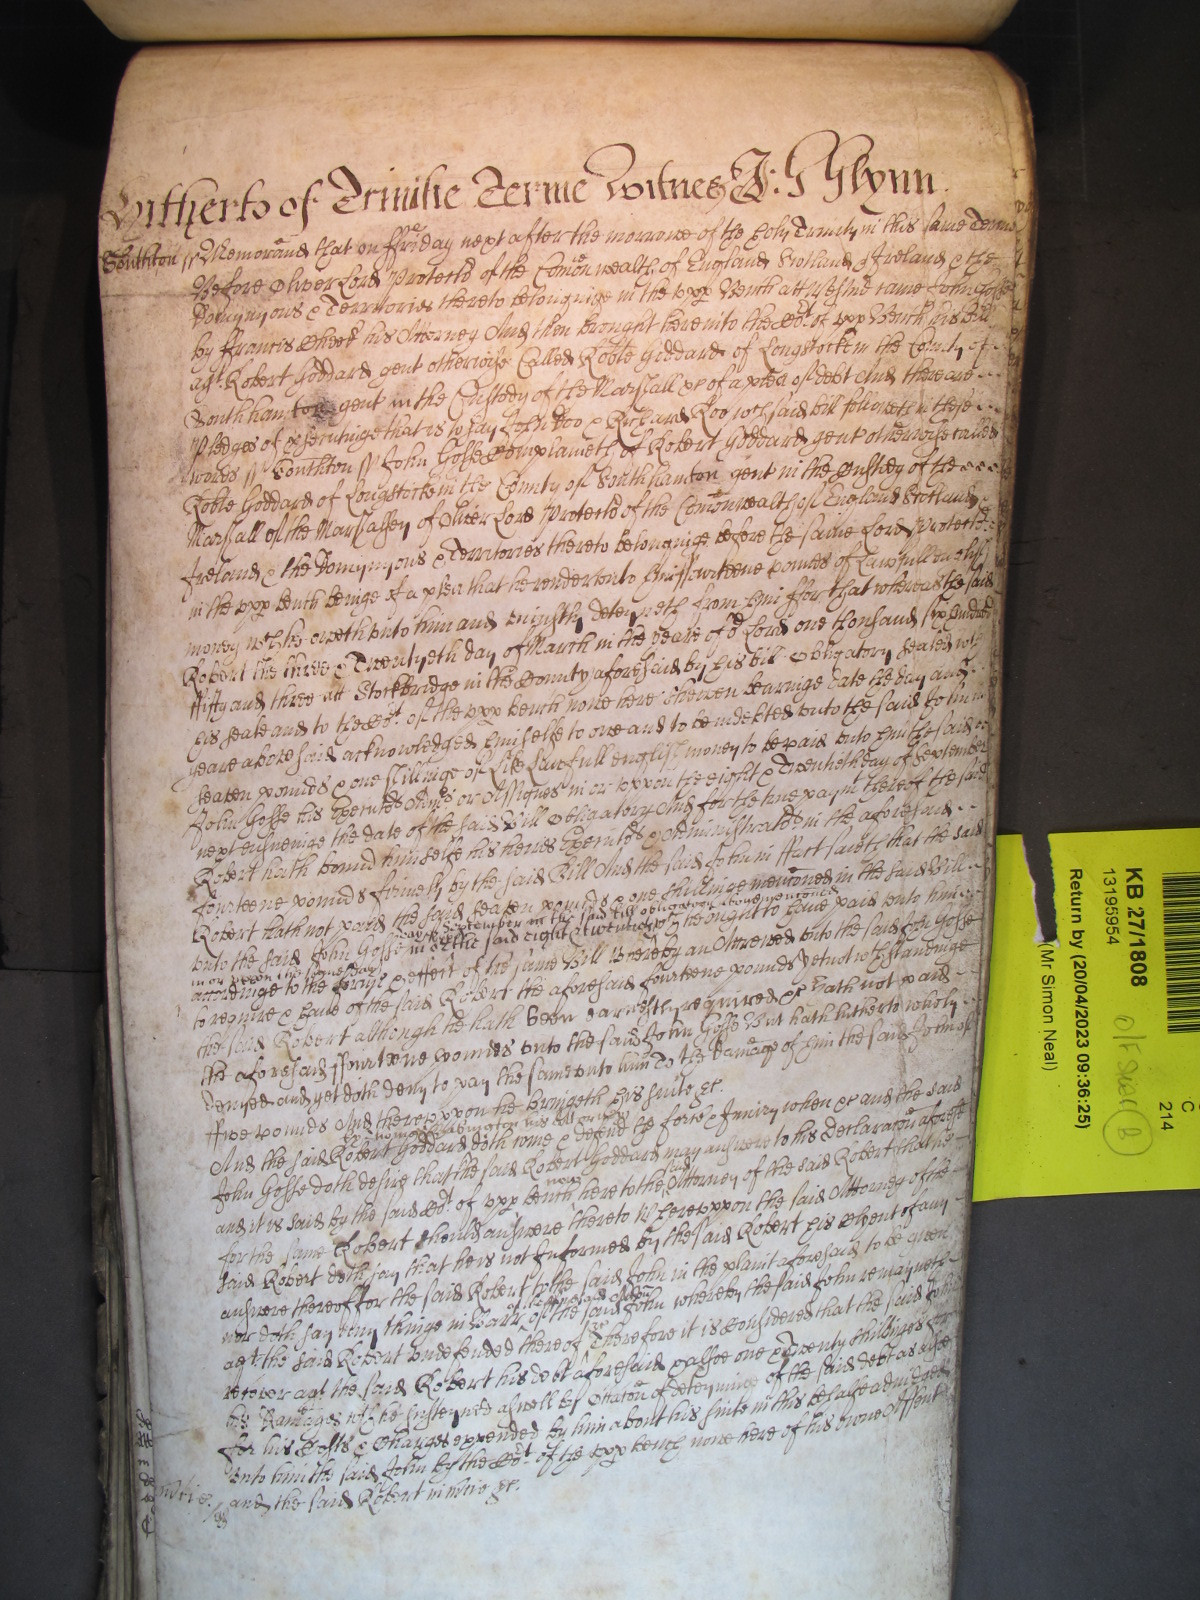 Hitherto of Trinitie Terme Witnes J: Glynn
Southton ss Memorand that on ffriday next after the morrowe of the holy Trinity in this same Terme
Before Oliver Lord Protector of the Comonwealth of England Scotland & Ireland & the
Domynyons & Territories thereto belonginge in the upp Bench att Westmr came John Gosse
by ffrancis his Attorney And then brought here into the Cort of upp Bench his Bill
agt Robert Goddard gent otherwise Called Robte Goddard of Longstocke in the County of
Southhamton gent in the Custody of the Marshall &c of a plea of debt And there are
Pledges of prosecutinge that is to say John Doo & Richard Roo wch said bill followeth in these
words ss Southton ss John Gosse Complaineth of Robert Goddard gent otherwise called
Robte Goddard of Longstocke in the County of Southhamton gent in the Custody of the
Marshall of the Marshallsey of Oliver Lord Protector of the Comonwealth of England Scotland
Ireland & the Domynyons & Territories thereto belonginge before the same Lord Protector
in the upp bench beinge of a plea that he render unto him ffourteene pounds of Lawfull english
money wch he oweth unto him and uniustly deteyneth from him ffor that whereas the said
Robert the three & Twentyeth day of March in the yeare of or Lord one thousand six hundred
ffifty and three att Stockbridge in the County aforesaid by his bill Obligatory sealed wth
his seale and to the Cort of the upp bench nowe here shewen bearinge date the day and
yeare abovesaid acknowledged himselfe to owe and to be indebted unto the said John in
seaven pounds & one shillinge of Like Lawfull english money to be paid unto him the said
John Gosse his Executors Admrs or Assignes in or uppon the eight & Twentieth day of September
next ensueinge the date of the said Bill Obligatory And for the true paymt thereof the said
Robert hath bound himselfe his heires Executors & Administrators in the aforesaid
fourteene pounds firmely by the said Bill And the said John in ffact saieth that the said
Robert hath not paid the said seaven pounds & one shillinge mentoned in the said Bill
unto the said John Gosse in the said eight & twentieth day of September in the said bill obligatory abovementioned wch he ought to have paid unto him
in or uppon the same day accordinge to the forme & effect of the same Bill Whereby an Acc̃on accrewed unto the said John Gosse
to require & have of the said Robert the aforesaid fourteene pounds Yet notwithstandinge
the said Robert although he hath been earnestly required &c hath not paid
the aforesaid ffourteene pounds unto the said John Gosse But hath hitherto wholy
denyed and yet doth deny to pay the same unto him To the damage of him the said John of
ffive pounds And thereuppon he bringeth his suite &c.
And the said Robert Goddard by Thomas Abington his Attorney doth come & defend the force & Iniury when &c and the said
John Gosse doth desire that the said Robert Goddard may answere to his Declaraton aforesd
and it is said by the said Cort of upp bench nowe here to the said Attorney of the said Robert that he
for the same Robert should answere thereto Whereuppon the said Attorney of the
said Robert doth say that he is not Informed by the said Robert his Clyent of any
answere thereof for the said Robert to the said John in the plaint aforesaid to be given
nor doth say any thinge in Barr of the said John whereby the said John remayneth
agt the said Robert undefended thereof &c Therefore it is Considered that the said John
recover agt the said Robert his debt aforesaid & alsoe one & Twenty shillings for
his Damages wch he susteyned aswell by Occaton of deteyninge of the said debt as alsoe
for his Costs & Charges expended by him about his suite in this behalfe adiudged
unto him the said John by the Cort of the upp bench nowe here of his owne Assent
and the said Robert in mercie &c.
KB 27/1808
13195954
Return by (20/04/2023 09:36:25)
(Mr Simon Neal)
C
214